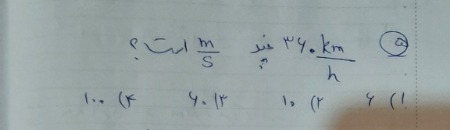 ۵) ۳۶۰ km/h چند m/s است؟
۱) ۶ ۲) ۱۰ ۳) ۶۰ ۴) ۱۰۰